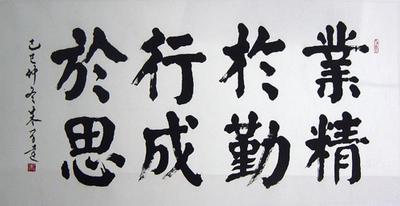 業精
於勤
行成
於思
己巳仲冬